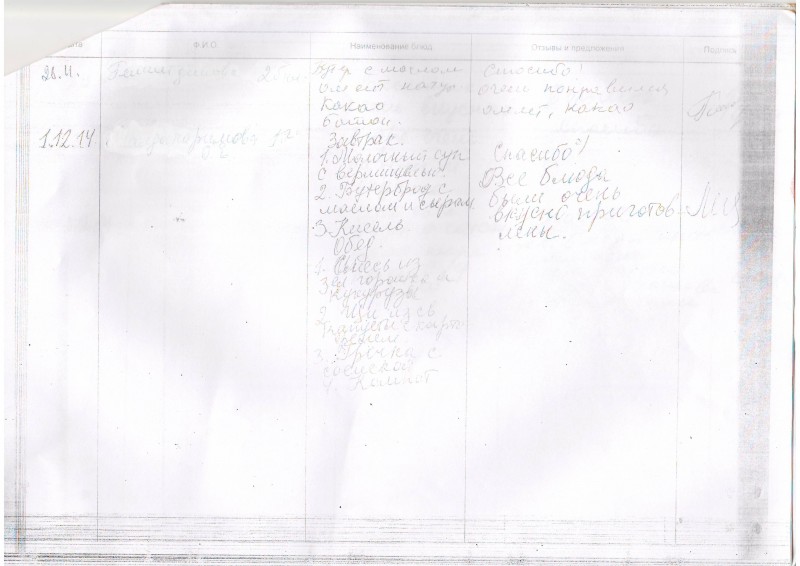 Ф.И.О. Наименование блюд Отзывы и предложения Подпись
28.11.
с маслом
омлет натур
Какао
Батон.
Спасибо!
очень понравился
омлет, какао
1.12.14.
Завтрак.
1. Молочный суп
с вермишелью.
2. Бутерброд с
маслом и сыром
3. Кисель
Обед.
1. Смесь из
зел горошка и
кукурузы
2. Щи из св
капусты с карто
фелем
3. Гречка с
сосиской
4. Компот
Спасибо!
Все блюда
были очень
вкусно приготов-
лены.